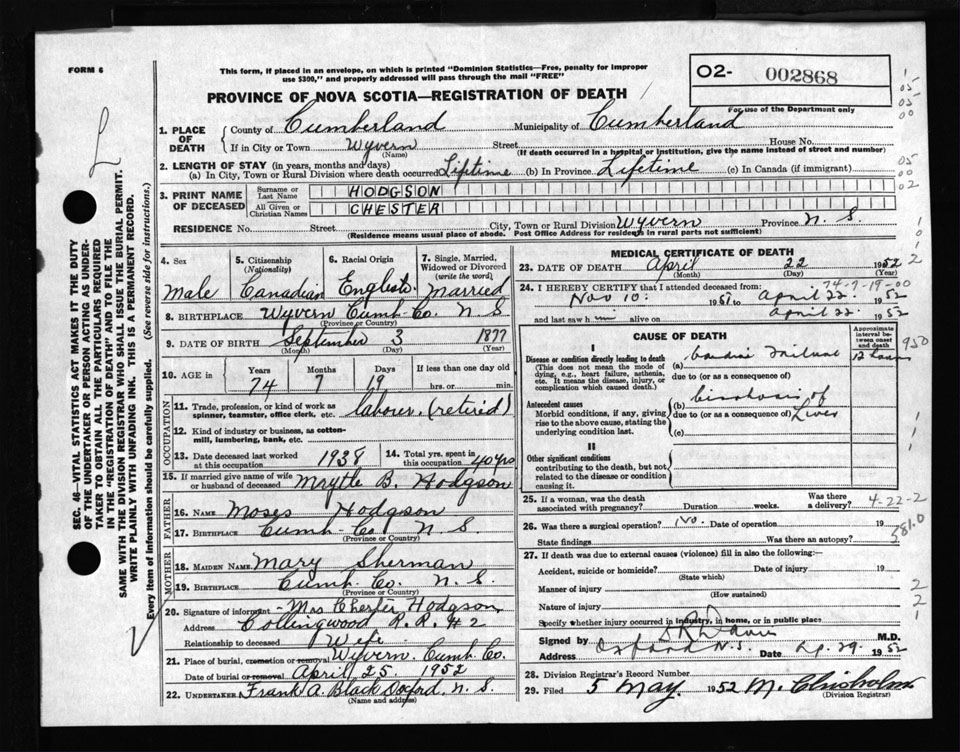 FORM 6
This form, if placed in an envelope, on which is printed "Dominion Statistics—Free, penalty for improper
use $300," and properly addressed will pass through the mail "FREE"
O2- 002868
For use of the Department only
PROVINCE OF NOVA SCOTIA—REGISTRATION OF DEATH
1. PLACE OF DEATH { County of Cumberland Municipality of Cumberland
If in City or Town Wyvern Street House No.
(Name) (If death occurred in a hospital or institution, give the name instead of street and number)
2. LENGTH OF STAY (in years, months and days)
(a) In City, Town or Rural Division where death occurred Lifetime (b) In Province Lifetime (c) In Canada (if immigrant)
3. PRINT NAME OF DECEASED { Surname or Last Name HODGSON
All Given or Christian Names CHESTER
RESIDENCE No. Street City, Town or Rural Division Wyvern Province N. S.
(Residence means usual place of abode. Post Office Address for residents in rural parts not sufficient)
4. Sex Male
5. Citizenship (Nationality) Canadian
6. Racial Origin English
7. Single, Married, Widowed or Divorced (write the word) Married
8. BIRTHPLACE Wyvern Cumb. Co. N S
(Province or Country)
9. DATE OF BIRTH September 3 1877
(Month) (Day) (Year)
10. AGE in { Years 74 Months 7 Days 19 If less than one day old hrs. or min.
OCCUPATION
11. Trade, profession, or kind of work as spinner, teamster, office clerk, etc. laborer (retired)
12. Kind of industry or business, as cotton-mill, lumbering, bank, etc.
13. Date deceased last worked at this occupation 1938
14. Total yrs. spent in this occupation 40 yrs
15. If married give name of wife or husband of deceased Myrtle B. Hodgson
FATHER
16. Name Moses Hodgson
17. Birthplace Cumb. Co. N S
(Province or Country)
MOTHER
18. Maiden Name Mary Sherman
19. Birthplace Cumb. Co. N. S.
(Province or Country)
20. Signature of informant Mrs Chester Hodgson
Address Collingwood R. R. # 2
Relationship to deceased Wife
21. Place of burial, cremation or removal Wyvern Cumb. Co.
Date of burial or removal April 25. 1952
22. Undertaker Frank A. Black Oxford, N. S.
(Name and address)
MEDICAL CERTIFICATE OF DEATH
23. DATE OF DEATH April 22 1952
(Month) (Day) (Year)
74-7-19-00
24. I HEREBY CERTIFY that I attended deceased from:
Nov 10: 1951 to April 22. 1952
and last saw him alive on April 22. 1952
CAUSE OF DEATH
Approximate interval between onset and death
I
Disease or condition directly leading to death
(This does not mean the mode of dying, e.g., heart failure, asthenia, etc. It means the disease, injury, or complication which caused death.)
(a) Cardiac Failure 12 hours
due to (or as a consequence of)
Antecedent causes
Morbid conditions, if any, giving rise to the above cause, stating the underlying condition last.
(b) cirrhosis of
due to (or as a consequence of) Liver
(c)
II
Other significant conditions
contributing to the death, but not related to the disease or condition causing it.
25. If a woman, was the death associated with pregnancy? Duration weeks. Was there a delivery?
4-22-2
26. Was there a surgical operation? No. Date of operation 19
State findings Was there an autopsy?
581.0
27. If death was due to external causes (violence) fill in also the following:—
Accident, suicide or homicide? Date of injury 19
(State which)
Manner of injury
(How sustained)
Nature of injury
Specify whether injury occurred in industry, in home, or in public place
Signed by M.D.
Address Oxford N.S. Date Ap. 29. 1952
28. Division Registrar's Record Number
29. Filed 5 May. 1952 M. Chisholm
(Division Registrar)
SEC. 46—VITAL STATISTICS ACT MAKES IT THE DUTY
OF THE UNDERTAKER OR PERSON ACTING AS UNDER-
TAKER TO OBTAIN ALL THE PARTICULARS REQUIRED
IN THE "REGISTRATION OF DEATH" AND TO FILE THE
SAME WITH THE DIVISION REGISTRAR WHO SHALL ISSUE THE BURIAL PERMIT.
WRITE PLAINLY WITH UNFADING INK. THIS IS A PERMANENT RECORD.
Every item of information should be carefully supplied. (See reverse side for instructions.)